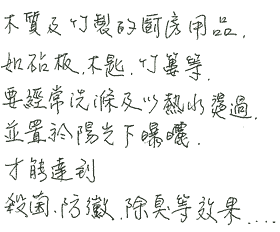 木質及竹製的廚房用品,
如砧板,木匙,竹簍等,
要經常洗滌及以熱水燙過,
並置於陽光下曝曬,
才能達到
殺菌,防黴,除臭等效果....